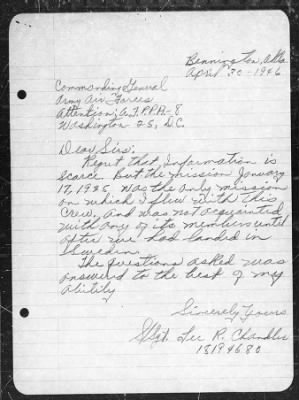 Bennington, Okla
April 30-1946
Commanding General
Army Air Forces
Attention: A.F.P.P.A-8
Washington 25, D.C.
Dear Sirs:
Regret that Information is
scarce. But the mission January
17, 1945 was the only mission
on which I flew with this
Crew, and was not acquainted
with any of its members until
after we had landed in
Sweden.
The questions asked was
answered to the best of my
Ability
Sincerely Yours
S/Sgt. Lee R. Chandler
18194680